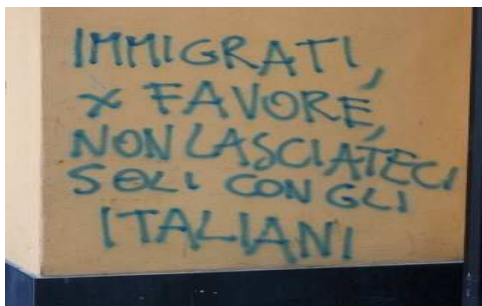 IMMIGRATI,
× FAVORE,
NON LASCIATECI
SOLI CON GLI
ITALIANI